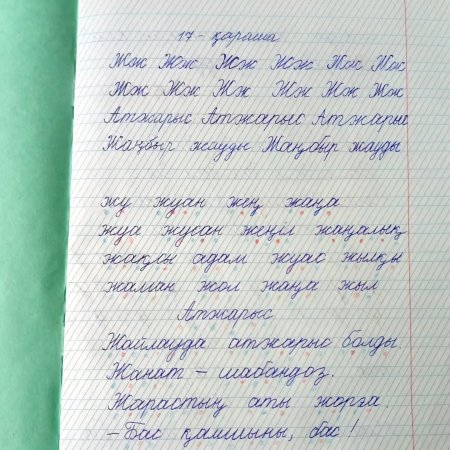 17 - қараша
Жж Жж Жж Жж Жж Жж
Жж Жж Жж Жж Жж Жж
Атжарыс Атжарыс Атжарыс
Жаңбыр жауды Жаңбыр жауды
жу жуан жең жаңа
жуа жусан жеңіл жаңалық
жақсы адам жуас жылқы
жаман жол жаңа жыл
Атжарыс
Жайлауда атжарыс болды
Жанат – шабандоз.
Жарастың аты жорға.
– Бас қамшыны, бас!